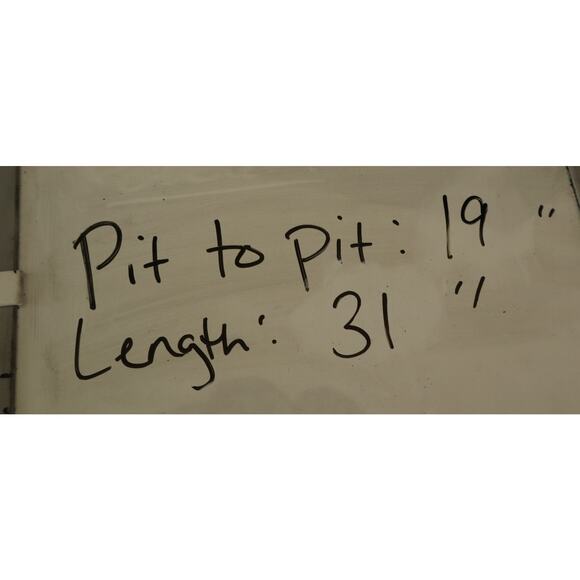 Pit to pit: 19 "
Length: 31 "